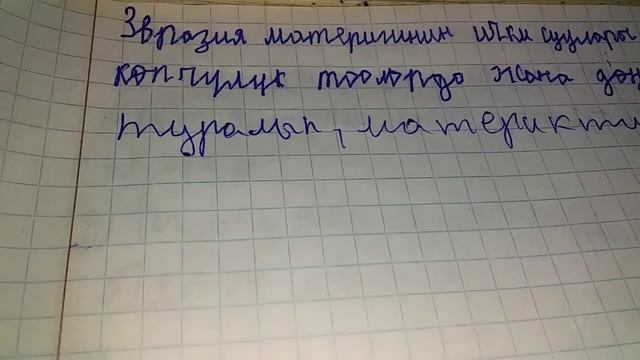 Звразия материгинин ички суулары
көпчүлүк тоолордо жана дөң
туралып, материкти